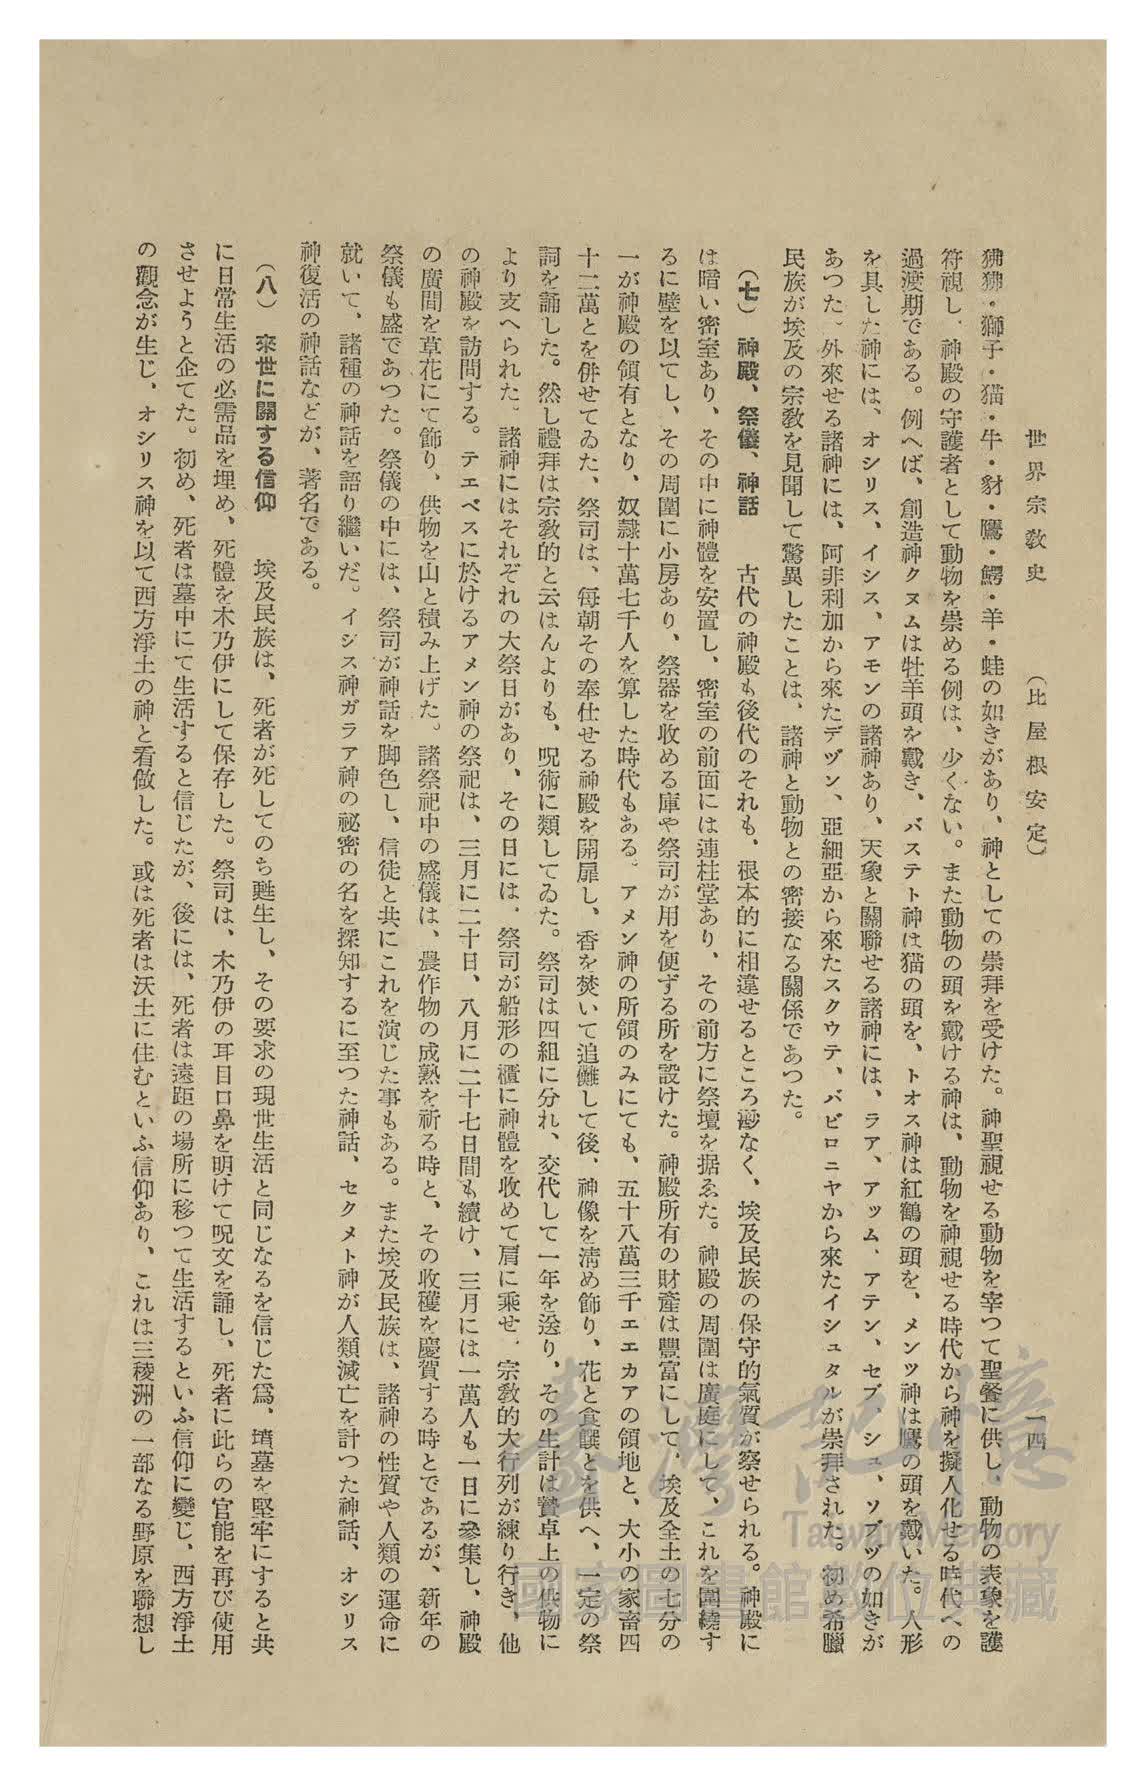 世界宗教史　（比屋根安定）　一四
狒狒・獅子・猫・牛・豺・鷹・鰐・羊・蛙の如きがあり、神としての崇拜を受けた。神聖視せる動物を宰つて聖餐に供し、動物の表象を護
符視し、神殿の守護者として動物を崇める例は、少くない。また動物の頭を戴ける神は、動物を神視せる時代から神を擬人化せる時代への
過渡期である。例へば、創造神クヌムは牡羊頭を戴き、バステト神は猫の頭を、トオス神は紅鶴の頭を、メンツ神は鷹の頭を戴いた。人形
を具した神には、オシリス、イシス、アモンの諸神あり、天象と關聯せる諸神には、ラア、アッム、アテン、セブ、シュ、ソブヅの如きが
あつた。外來せる諸神には、阿非利加から來たデヅン、亞細亞から來たスクウテ、バビロニヤから來たイシュタルが崇拜された。初め希臘
民族が埃及の宗教を見聞して驚異したことは、諸神と動物との密接なる關係であつた。
（七）　神殿、祭儀、神話　古代の神殿も後代のそれも、根本的に相違せるところ尠なく、埃及民族の保守的氣質が察せられる。神殿に
は暗い密室あり、その中に神體を安置し、密室の前面には連柱堂あり、その前方に祭壇を据ゑた。神殿の周圍は廣庭にして、これを圍繞す
るに壁を以てし、その周圍に小房あり、祭器を收める庫や祭司が用を便ずる所を設けた。神殿所有の財產は豐富にして、埃及全土の七分の
一が神殿の領有となり、奴隷十萬七千人を算した時代もある。アメン神の所領のみにても、五十八萬三千エエカアの領地と、大小の家畜四
十二萬とを併せてゐた、祭司は、每朝その奉仕せる神殿を開扉し、香を焚いて追儺して後、神像を淸め飾り、花と食饌とを供へ、一定の祭
詞を誦した。然し禮拜は宗教的と云はんよりも、呪術に類してゐた。祭司は四組に分れ、交代して一年を送り、その生計は贄卓上の供物に
より支へられた。諸神にはそれぞれの大祭日があり、その日には、祭司が船形の櫃に神體を收めて肩に乘せ、宗教的大行列が練り行き、他
の神殿を訪問する。テエベスに於けるアメン神の祭祀は、三月に二十日、八月に二十七日間も續け、三月には一萬人も一日に參集し、神殿
の廣間を草花にて飾り、供物を山と積み上げた。諸祭祀中の盛儀は、農作物の成熟を祈る時と、その收穫を慶賀する時とであるが、新年の
祭儀も盛であつた。祭儀の中には、祭司が神話を脚色し、信徒と共にこれを演じた事もある。また埃及民族は、諸神の性質や人類の運命に
就いて、諸種の神話を語り繼いだ。イシス神がラア神の祕密の名を探知するに至つた神話、セクメト神が人類滅亡を計つた神話、オシリス
神復活の神話などが、著名である。
（八）　來世に關する信仰　埃及民族は、死者が死してのち甦生し、その要求の現世生活と同じなるを信じた爲、墳墓を堅牢にすると共
に日常生活の必需品を埋め、死體を木乃伊にして保存した。祭司は、木乃伊の耳目口鼻を明けて呪文を誦し、死者に此らの官能を再び使用
させようと企てた。初め、死者は墓中にて生活すると信じたが、後には、死者は遠距の場所に移つて生活するといふ信仰に變じ、西方淨土
の觀念が生じ、オシリス神を以て西方淨土の神と看做した。或は死者は沃土に住むといふ信仰あり、これは三稜洲の一部なる野原を聯想し
臺灣記憶
Taiwan Memory
國家圖書館數位典藏